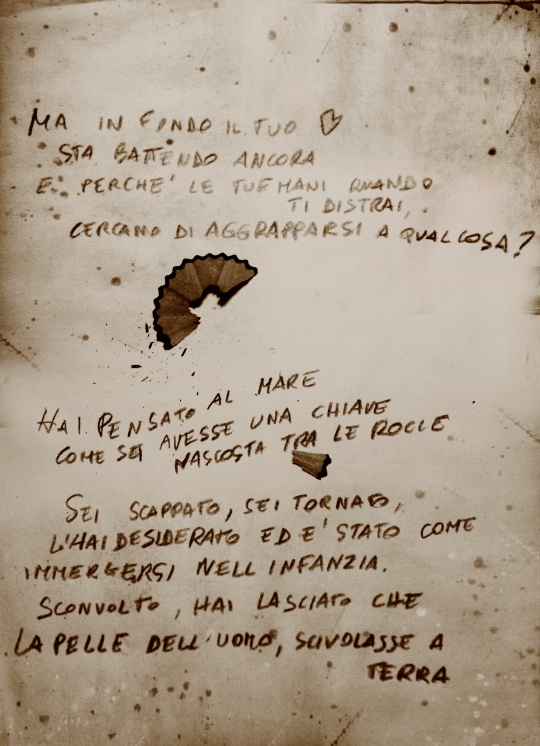 MA IN FONDO IL TUO ♡
STA BATTENDO ANCORA
E PERCHE' LE TUE MANI QUANDO
TI DISTRAI,
CERCANO DI AGGRAPPARSI A QUALCOSA?
HAI PENSATO AL MARE
COME SE AVESSE UNA CHIAVE
NASCOSTA TRA LE ROCCE
SEI SCAPPATO, SEI TORNATO,
L'HAI DESIDERATO ED E' STATO COME
IMMERGERSI NELL'INFANZIA.
SCONVOLTO, HAI LASCIATO CHE
LA PELLE DELL'UOMO, SCIVOLASSE A
TERRA